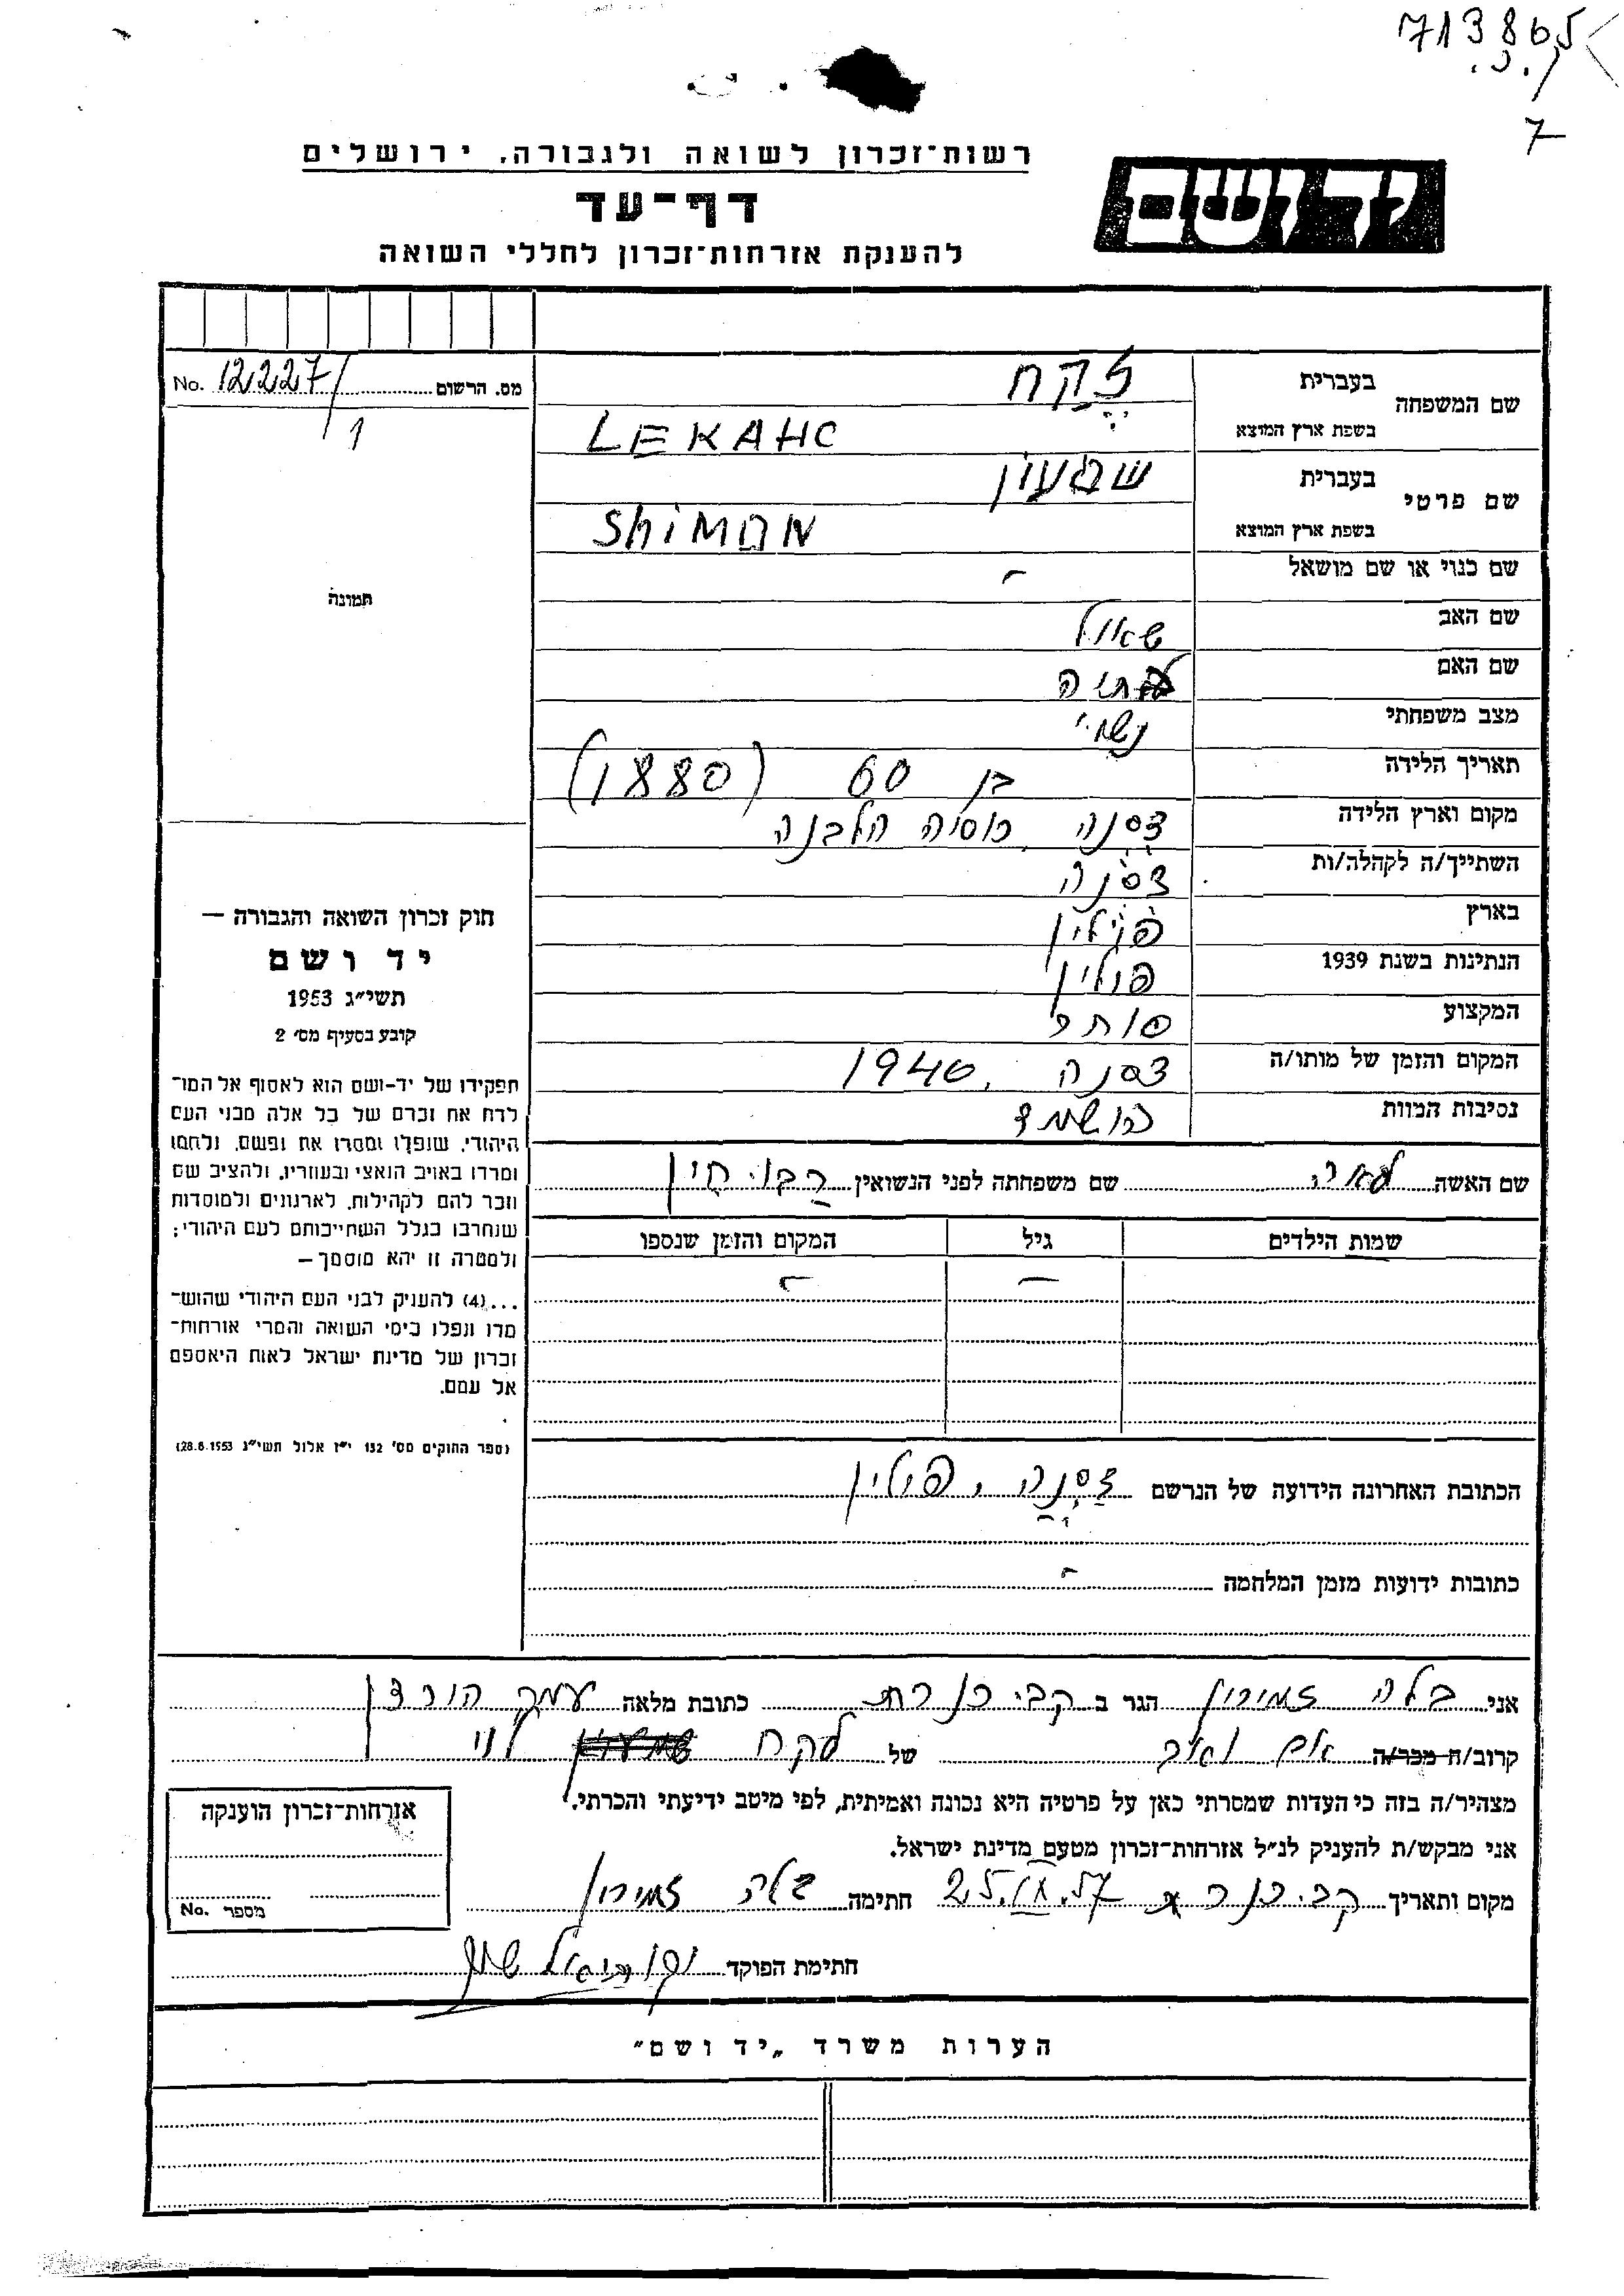 713865
.כ.
7
רשות־זכרון לשואה ולגבורה, ירושלים
יד ושם
דף־עד
להענקת אזרחות־זכרון לחללי השואה
מס. הרשום 12227/1 No.
שם המשפחה בעברית לקח
בשפת ארץ המוצא LEKAHC
שם פרטי בעברית שמעון
בשפת ארץ המוצא SHiMON
שם כנוי או שם מושאל –
שם האב שאול
שם האם
מצב משפחתי נשוי
תאריך הלידה בן 60 (1880)
מקום וארץ הלידה דסנה רוסיה הלבנה
השתייך/ה לקהלה/ות דסנה
בארץ פולין
הנתינות בשנת 1939 פולין
המקצוע סוחר
המקום והזמן של מותו/ה דסנה, 1940
נסיבות המוות הושמד
תמונה
שם האשה לאה שם משפחתה לפני הנשואין
שמות הילדים גיל המקום והזמן שנספו
– –
הכתובת האחרונה הידועה של הנרשם דסנה, פולין
כתובות ידועות מזמן המלחמה –
חוק זכרון השואה והגבורה —
יד ושם
תשי״ג 1953
קובע בסעיף מס׳ 2
תפקידו של יד־ושם הוא לאסוף אל המו־
לדת את זכרם של כל אלה מבני העם
היהודי, שנפלו ומסרו את נפשם, נלחמו
ומרדו באויב הנאצי ובעוזריו, ולהציב שם
וזכר להם לקהילות, לארגונים ולמוסדות
שנחרבו בגלל השתייכותם לעם היהודי;
ולמטרה זו יהא מוסמך —
...(4) להעניק לבני העם היהודי שהוש־
מדו ונפלו בימי השואה והמרי אזרחות־
זכרון של מדינת ישראל לאות היאספם
אל עמם.
(ספר החוקים מס׳ 132 י״ז אלול תשי״ג 28.8.1953)
אני בלה זמירון הגר ב קב. כנרת כתובת מלאה עמק הירדן
קרוב/ה מכר/ה של לקח שמעון
מצהיר/ה בזה כי העדות שמסרתי כאן על פרטיה היא נכונה ואמיתית, לפי מיטב ידיעתי והכרתי.
אני מבקש/ת להעניק לנ״ל אזרחות־זכרון מטעם מדינת ישראל.
מקום ותאריך קב. כנרת חתימה בלה זמירון
חתימת הפוקד
אזרחות־זכרון הוענקה
מספר No.
הערות משרד „יד ושם״